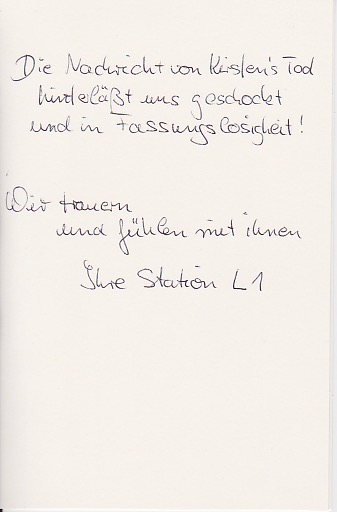 Die Nachricht von Kirsten's Tod
hinterläßt uns geschockt
und in Fassungslosigkeit!
Wir trauern
und fühlen mit ihnen
Ihre Station L1